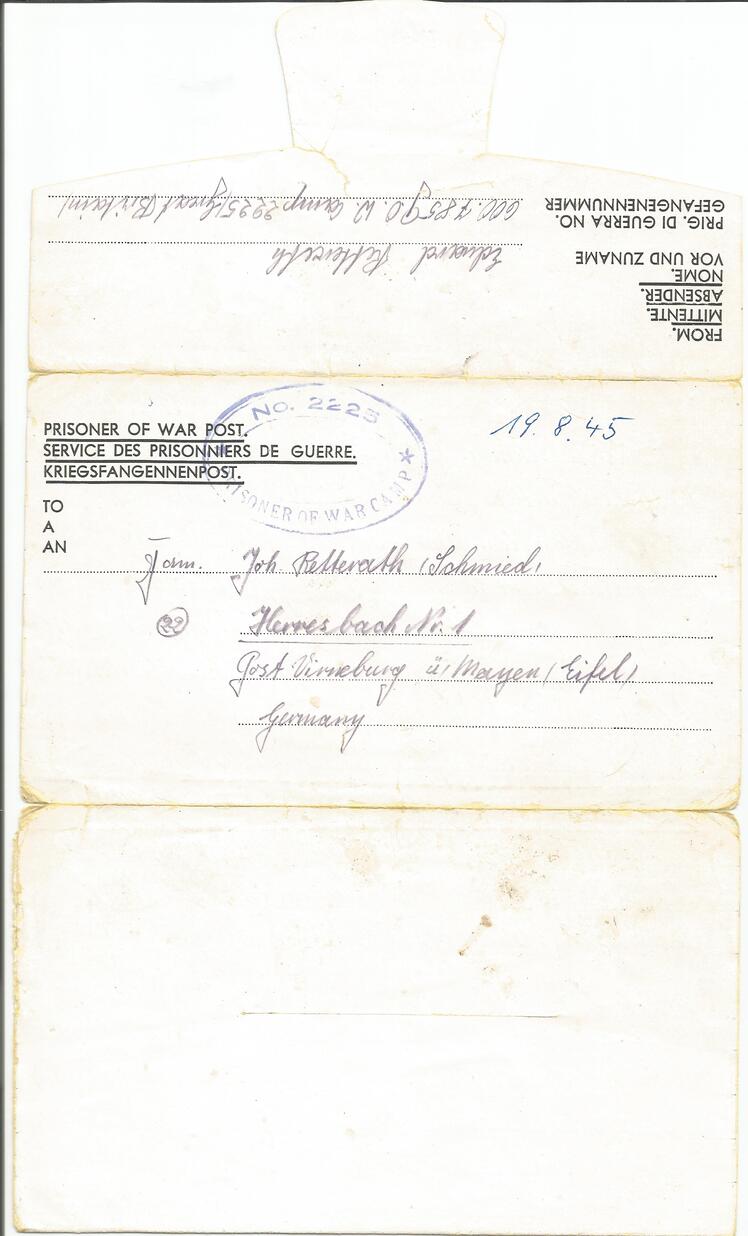 FROM.
MITTENTE.
ABSENDER.
NOME.
VOR UND ZUNAME
Eduard Retterath
PRIG. DI GUERRA NO.
GEFANGENENNUMMER
600.785 P.O.W. Camp 2225 (Great Britain)
No. 2225
PRISONER OF WAR CAMP
19.8.45
PRISONER OF WAR POST.
SERVICE DES PRISONNIERS DE GUERRE.
KRIEGSFANGENNENPOST.
TO
A
AN
Fam. Joh. Retterath (Schmied)
22
Herresbach Nr. 1
Post Virneburg ü/Mayen (Eifel)
Germany